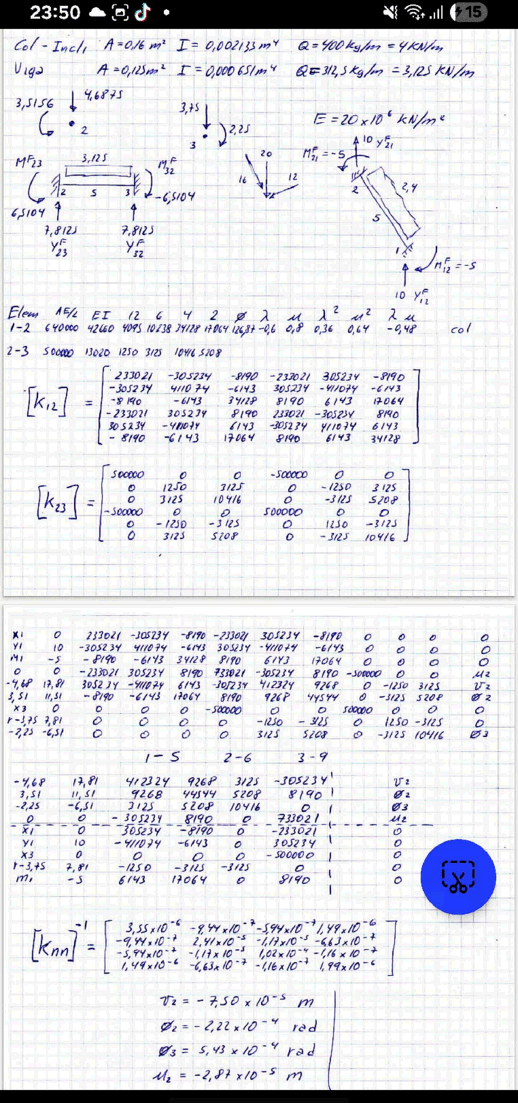 23:50
15
Col-Incl, A=0,16 m² I=0,002133 m⁴ Q=400 kg/m = 4 KN/m
Viga A=0,125 m² I=0,000651 m⁴ Q=312,5 kg/m = 3,125 KN/m
4,6875
3,5156
2
3,75
2,25
3
E = 20x10⁶ KN/m²
20
16
12
10 Y^F_21
M^F_21 = -5
2,4
2
5
1
M^F_12 = -5
10 Y^F_12
M^F_23
3,125
M^F_32
2
5
3
6,5104
-6,5104
7,8125
7,8125
Y^F_23
Y^F_32
Elem AE/L EI 12 6 4 2 Ø λ μ λ² μ² λμ
1-2 640000 42660 4095 10238 34128 17064 126,87 -0,6 0,8 0,36 0,64 -0,48 col
2-3 500000 13020 1250 3125 10416 5208
[K12] =
233021 -305234 -8190 -233021 305234 -8190
-305234 411074 -6143 305234 -411074 -6143
-8190 -6143 34128 8190 6143 17064
-233021 305234 8190 233021 -305234 8190
305234 -411074 6143 -305234 411074 6143
-8190 -6143 17064 8190 6143 34128
[K23] =
500000 0 0 -500000 0 0
0 1250 3125 0 -1250 3125
0 3125 10416 0 -3125 5208
-500000 0 0 500000 0 0
0 -1250 -3125 0 1250 -3125
0 3125 5208 0 -3125 10416
X1 0 233021 -305234 -8190 -233021 305234 -8190 0 0 0 0
Y1 10 -305234 411074 -6143 305234 -411074 -6143 0 0 0 0
M1 -5 -8190 -6143 34128 8190 6143 17064 0 0 0 0
0 0 -233021 305234 8190 733021 -305234 8190 -500000 0 0 μ2
-4,68 17,81 305234 -411074 6143 -305234 412324 9268 0 -1250 3125 v2
3,51 11,51 -8190 -6143 17064 8190 9268 44544 0 -3125 5208 Ø2
X3 0 0 0 0 -500000 0 0 500000 0 0 0
r-3,75 7,81 0 0 0 0 -1250 -3125 0 1250 -3125 0
-2,25 -6,51 0 0 0 0 3125 5208 0 -3125 10416 Ø3
1-5 2-6 3-9
-4,68 17,81 412324 9268 3125 -305234 v2
3,51 11,51 9268 44544 5208 8190 Ø2
-2,25 -6,51 3125 5208 10416 0 Ø3
0 0 -305234 8190 0 733021 μ2
X1 0 305234 -8190 0 -233021 0
Y1 10 -411074 -6143 0 305234 0
X3 0 0 0 0 -500000 0
r-3,75 7,81 -1250 -3125 -3125 0 0
M1 -5 6143 17064 0 8190 0
[Knn]⁻¹ =
3,55x10⁻⁶ -9,44x10⁻⁷ -5,94x10⁻⁷ 1,49x10⁻⁶
-9,44x10⁻⁷ 2,41x10⁻⁵ -1,17x10⁻⁵ -6,63x10⁻⁷
-5,94x10⁻⁷ -1,17x10⁻⁵ 1,02x10⁻⁴ -1,16x10⁻⁷
1,49x10⁻⁶ -6,63x10⁻⁷ -1,16x10⁻⁷ 1,99x10⁻⁶
v2 = -7,50 x 10⁻⁵ m
Ø2 = -2,22 x 10⁻⁴ rad
Ø3 = 5,43 x 10⁻⁴ rad
μ2 = -2,87 x 10⁻⁵ m